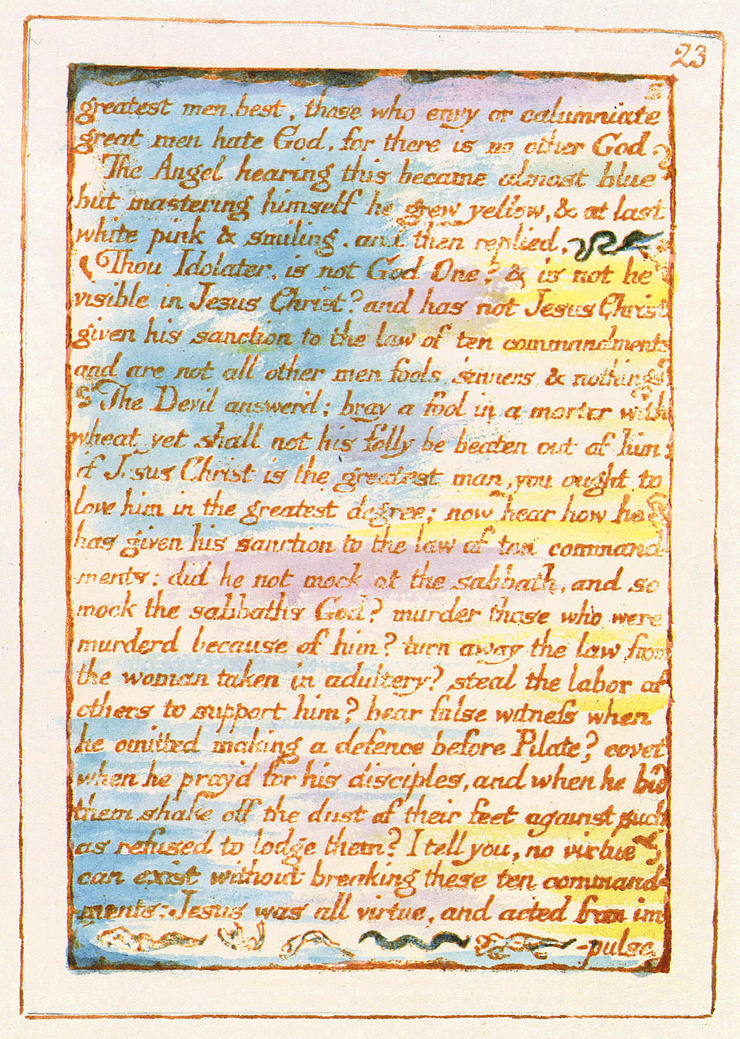 23
greatest men best, those who envy or calumniate
great men hate God, for there is no other God.
The Angel hearing this became almost blue
but mastering himself he grew yellow, & at last
white pink & smiling, and then replied,
Thou Idolater, is not God One? & is not he
visible in Jesus Christ? and has not Jesus Christ
given his sanction to the law of ten commandments
and are not all other men fools, sinners, & nothings?
The Devil answerd; bray a fool in a morter with
wheat, yet shall not his folly be beaten out of him:
if Jesus Christ is the greatest man, you ought to
love him in the greatest degree; now hear how he
has given his sanction to the law of ten command-
ments: did he not mock at the sabbath, and so
mock the sabbaths God? murder those who were
murderd because of him? turn away the law from
the woman taken in adultery? steal the labor of
others to support him? bear false witness when
he omitted making a defence before Pilate? covet
when he pray'd for his disciples, and when he bid
them shake off the dust of their feet against such
as refused to lodge them? I tell you, no virtue
can exist without breaking these ten command-
ments: Jesus was all virtue, and acted from im
-pulse,